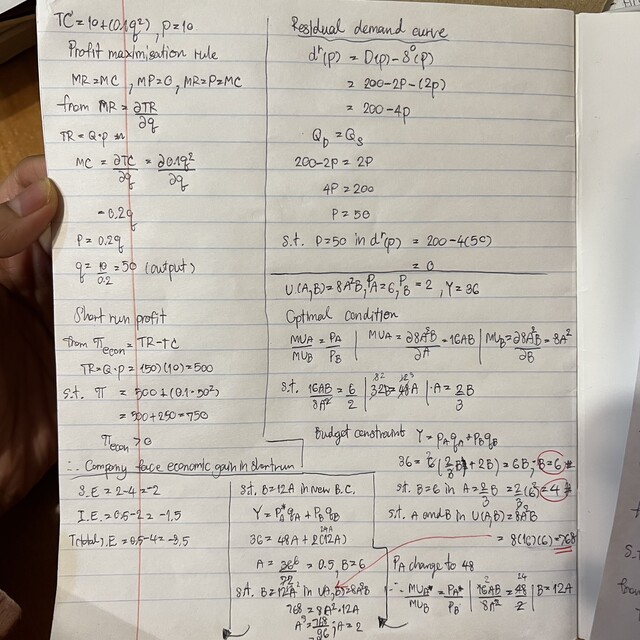 TC = 10+(0.1q²), P=10
Profit maximisation rule
MR=MC , MP=0, MR=P=MC
from MR = ∂TR/∂q
TR = Q·P
MC = ∂TC/∂q = ∂0.1q²/∂q
= 0.2q
P = 0.2q
q = 10/0.2 = 50 (output)
Short run profit
from πecon = TR-TC
TR = Q·P = (50)(10) = 500
s.t. π = 500+(0.1·50²)
= 500+250=750
πecon > 0
∴ Company face economic gain in short run
S.E = 2-4 = -2
I.E = 0.5-2 = -1.5
Total S.E = 0.5-4 = -3.5
Residual demand curve
dʳ(p) = D(p) - S⁰(p)
= 200-2P-(2p)
= 200-4p
QD = QS
200-2P = 2P
4P = 200
P = 50
s.t. P=50 in dʳ(p) = 200-4(50)
= 0
U(A,B) = 8A²B, PA=6, PB=2, Y=36
Optimal condition
MUA/MUB = PA/PB | MUA = ∂8A²B/∂A = 16AB | MUB = ∂8A²B/∂B = 8A²
s.t. 16AB/8A² = 6/2 | 32B = 48A | ·A = 2B/3
Budget constraint Y = PAqA + PBqB
36 = 6(2/3 B) + 2B) = 6B, B=6
s.t. B=6 in A = 2/3 B = 2/3 (6) = 4
s.t. A and B in U(A,B) = 8A²B
= 8(16)(6) = 768
PA change to 48
∴ MUA*/MUB = PA*/PB | 16AB/8A² = 48/2 | B=12A
s.t. B=12A in new B.C.
Y = PA*qA + PBqB
36 = 48A + 2(12A)
A = 36/72 = 0.5, B=6
s.t. B=12A in U(A,B)=8A²B
768 = 8A²·12A
A³ = 768/96 ; A = 2